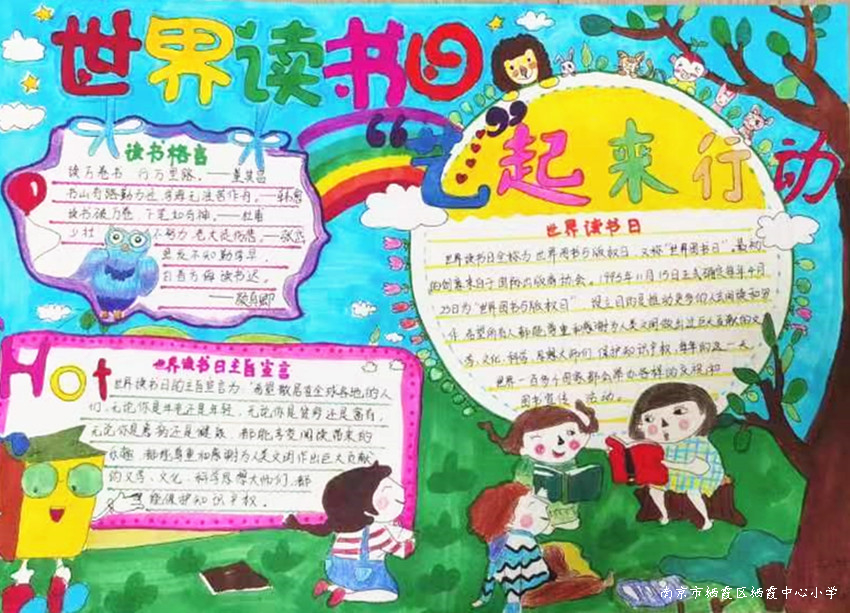 世界读书日
“艺”起来行动
读书格言
读万卷书 行万里路。——董其昌
书山有路勤为径 学海无涯苦作舟。——韩愈
读书破万卷 下笔如有神。——杜甫
少壮 不努力 老大徒伤悲。——
黑发不知勤学早,
白首方悔读书迟。
——颜真卿
世界读书日
世界读书日全称为世界图书与版权日,又称“世界图书日”。最初
的创意来自于国际出版商协会。1995年11月15日正式确定每年4月
23日为“世界图书与版权日”设立目的是推动更多的人去阅读和写
作 希望所有人都能尊重和感谢为人类文明做出过巨大贡献的文
学、文化、科学、思想大师们 保护知识产权,每年的这一天
世界一百多个国家都会举办各样的庆祝和
图书宣传 活动。
Hot
世界读书日主旨宣言
世界读书日的主旨宣言为:“希望散居在全球各地的人
们,无论你是年老还是年轻,无论你是贫穷还是富有,
无论你是患病还是健康,都能享受阅读带来的
乐趣 都能尊重和感谢为人类文明作出巨大贡献
的文学、文化、科学思想大师们,都
能保护知识产权。
南京市栖霞区栖霞中心小学